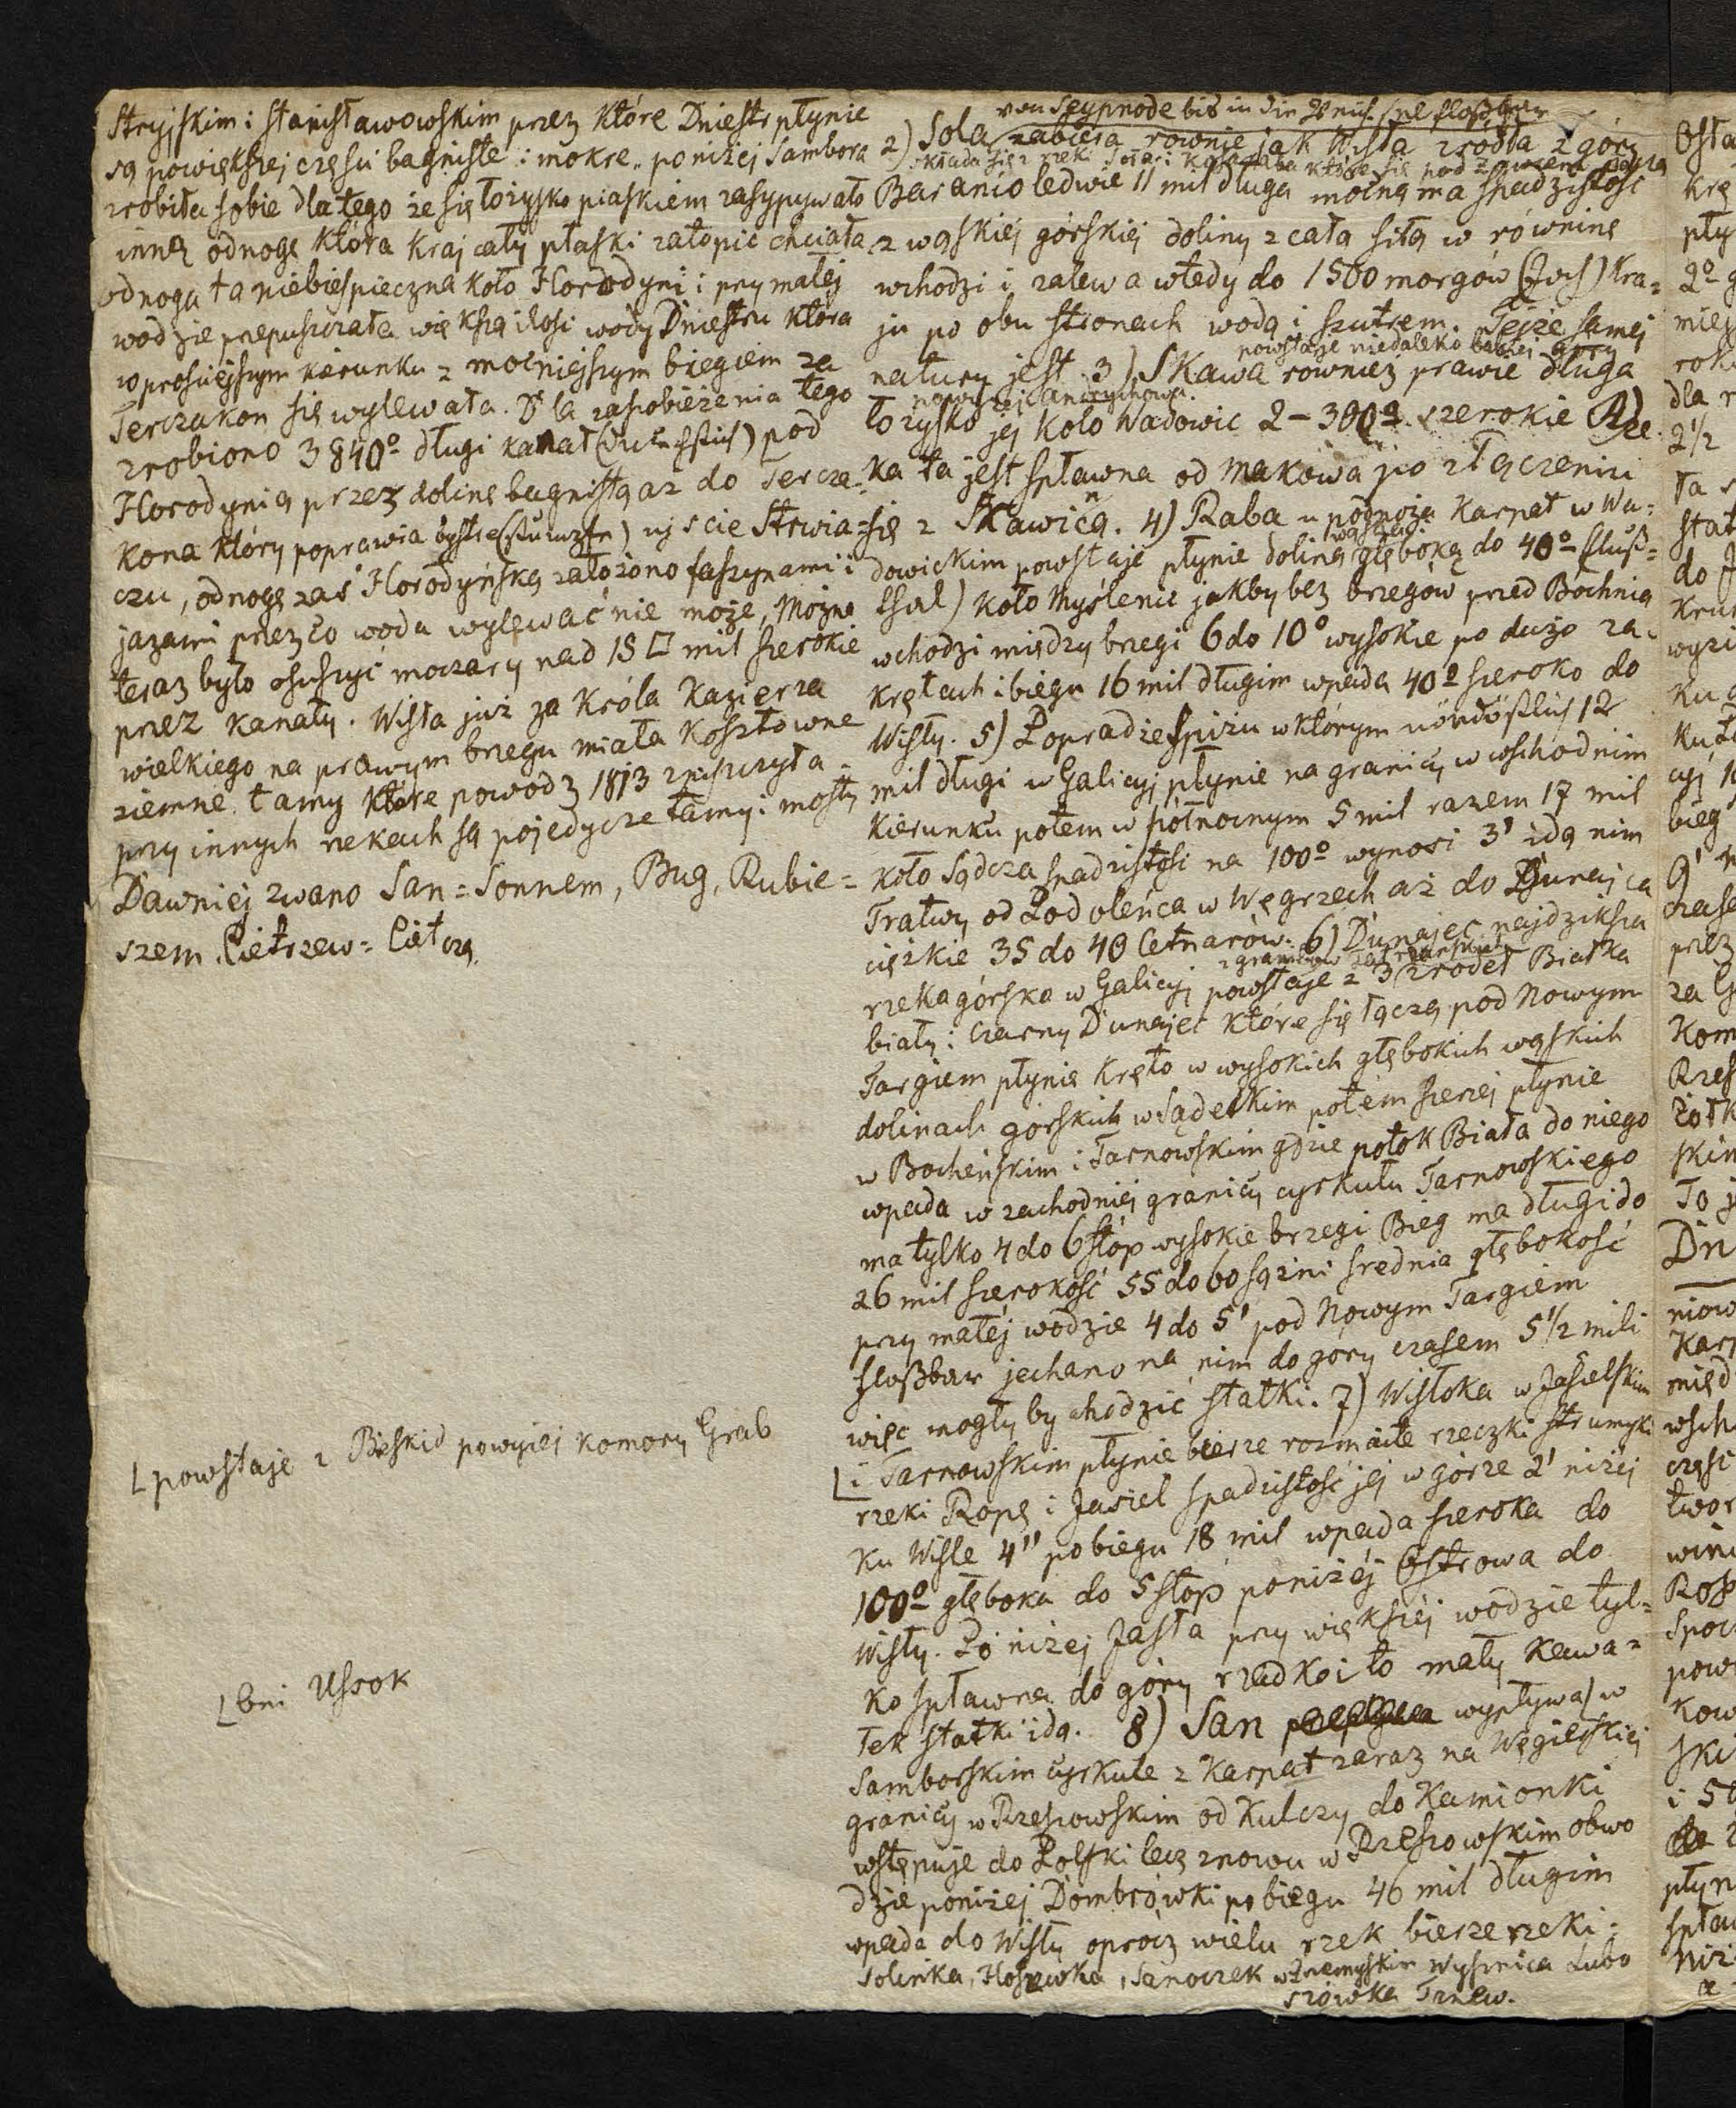 Stryjskim i Stanisławowskim przez które Dniestr płynie
są powiększej części bagniste i mokre. poniżej Sambora
zrobiła sobie dla tego że się łożysko piaskiem zasypywało
inną odnogę która kraj cały płaski zatopić chciała
odnoga ta niebiespieczna koło Horodyni i przy małej
wodzie przepuszczała większą ilość wody Dniestru która
w prościejszym kierunku z mocniejszym biegiem za
Terczakon się wylewała. Dla zapobieżenia tego
zrobiono 3840º długi kanał (Durchstich) pod
Horodynią przez dolinę bagnistą aż do Tercza-
kona który poprawia bystre ujście Strwią-
czu, odnogę zaś Horodyńską założono faszynami i
jazami przez co woda wylewać nie może, Można
teraz było osuszyć moczary nad 15 □ mil szerokie
przez kanały. Wisła już za króla Kazierza
wielkiego na prawym brzegu miała kosztowne
ziemne tamy które powódz 1813 zniszczyła
przy innych rzekach są pojedycze tamy i mosty
Dawniej zwano San = Sonnem, Bug, Rubie =
szem, Cietrzew = Ciet czą.
[powstaje z Beskid powyżej komory Grab
[bei Ussok
von Seypnode bis in die floßbar
2) Sola, zabiera rownie jak Wisła zrodła z góry
składa się z rzeki Sola i które się pod łączą
Baranio ledwie 11 mil długa mocną ma spadzistość
z wąskiéj górskiéj doliny z całą siłą w równinę
wchodzi i zalewa wtedy do 1500 morgów (Joch) kra=
ju po obu stronach wodą i szutrem. Tejże samej
powstaje niedaleko babiej góry
natury jest 3) Skawa rownież prawie długa
łożysko jej koło Wadowic 2-300º szerokie Rze
ka ta jest spławna od Makowa po złączeniu
się z Skawicą. 4) Raba u podnoża Karpat w Wa=
wąską i
dowickim powstaje płynie doliną głęboką do 40º (Fluß=
thal) koło Myślenic jakby bez brzegów przed Bochnią
wchodzi między brzegi 6 do 10º wysokie po dużo za-
krętach i biegu 16 mil długim wpada 40º szeroko do
Wisły. 5) Poprad ze Spiżu w którym nördöstlich 12
mil długi w Galicyj płynie na granicy w wschodnim
kierunku potem w północnym 5 mil razem 17 mil
koło Sądcza spadzistość na 100º wynosi 3' idą nim
Tratwy od Podoleńca w Węgrzech aż do Dunajca
ciężkie 35 do 40 Cetnarów. 6) Dunajec najdziksza
rzeka górska w Galicyj powstaje z 3 zrodeł Białka
biały i czarny Dunajec które się łączą pod Nowym
Targiem płynie kręto w wysokich głębokich wąskich
dolinach górskich w Sądeckim potem szerzej płynie
w Bocheńskim i Tarnowskim gdzie potok Biała do niego
wpada w zachodniej granicy cyrkułu Tarnowskiego
ma tylko 4 do 6 stóp wysokie brzegi Bieg ma długi do
26 mil szerokość 55 do 60 sążni średnia głębokość
przy małej wodzie 4 do 5' pod Nowym Targiem
floßbar jechano na nim do góry czasem 5 1/2 mili
więc mogły by chodzić statki. 7) Wisłoka w Jasielskim
[i Tarnowskim płynie bierze rozmaite rzeczki strumyki
rzeki Ropę i Jasiel spadzistość jej w górze 2' niżej
ku Wiśle 4" po biegu 18 mil wpada szeroka do
100º głęboka do 5 stóp poniżéj Ostrowa do
Wisły. Po niżej Jasła przy większéj wodzie tyl=
ko spławna do góry rzadko i to mały kawa=
łek statki idą. 8) San wypływa w
Samborskim cyrkule z Karpat zaraz na Węgierskiej
granicy w Rzeszowskim od Kulczy do Kamionki
wstępuje do Polski lecz znowu w Rzeszowskim obwo
dzie poniżej Dombrówki po biegu 46 mil długim
wpada do Wisły oprócz wielu rzek bierze rzeki:
Solinka, Hoszewka, Sanoczek w Przemyskim Wysznica Lubo
szówka Tnew.